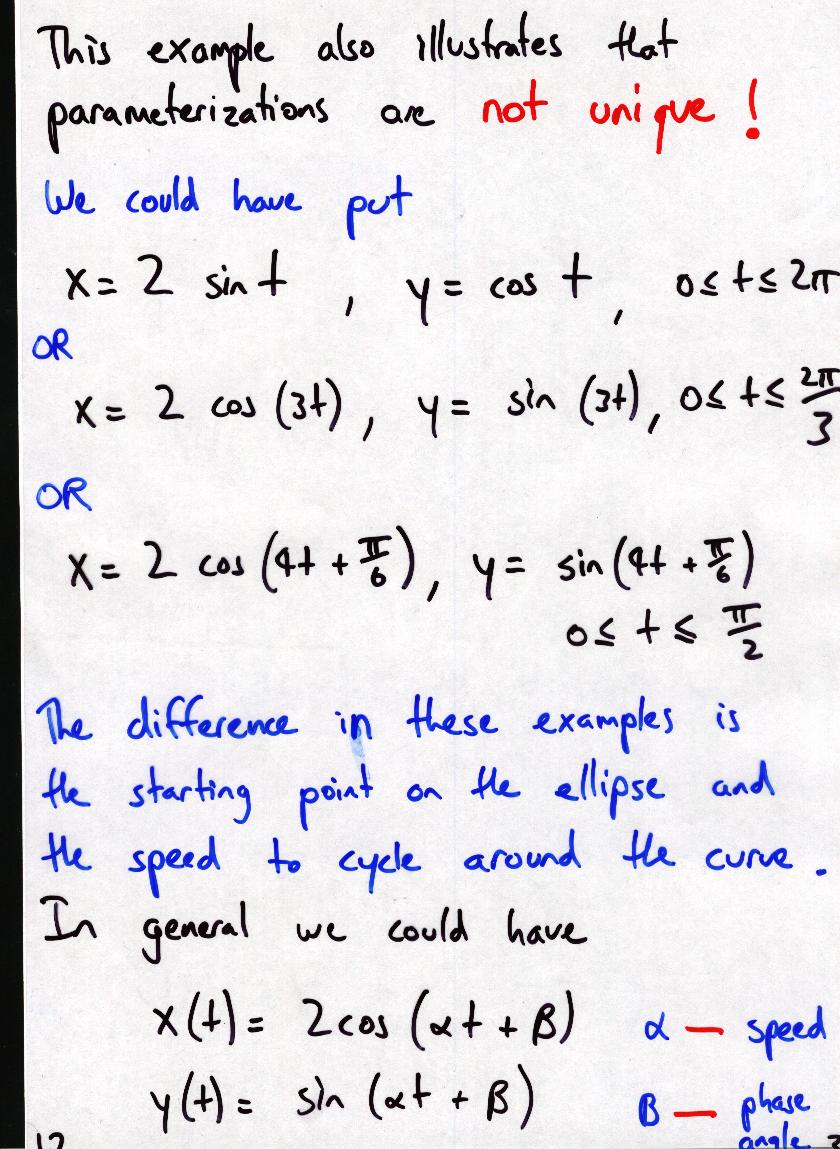 This example also illustrates that
parameterizations are not unique!
We could have put
x = 2 sin t , y = cos t , 0 ≤ t ≤ 2π
OR
x = 2 cos (3t) , y = sin (3t) , 0 ≤ t ≤ 2π/3
OR
x = 2 cos (4t + π/6) , y = sin (4t + π/6)
0 ≤ t ≤ π/2
The difference in these examples is
the starting point on the ellipse and
the speed to cycle around the curve.
In general we could have
x(t) = 2cos (αt + β) α — speed
y(t) = sin (αt + β) β — phase
angle